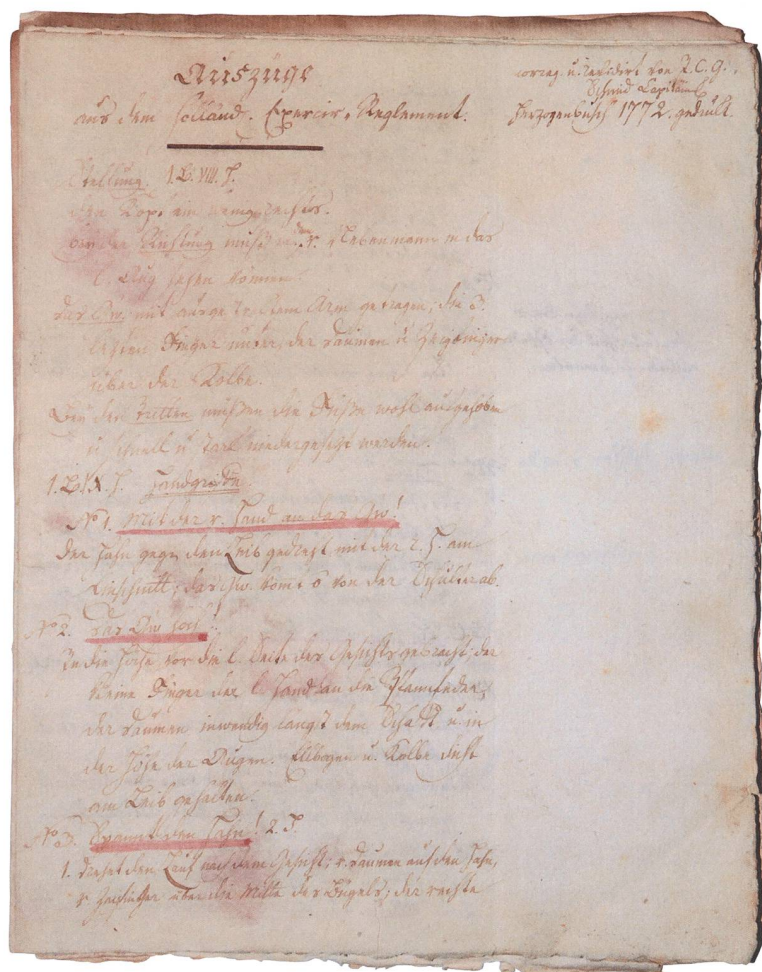 Auszüge
aus dem Holländ. Exercir-Reglement.
corrig. u. revidirt von R.C.G.
Schmid Capitaine
Herzogenbusch 1772. gedruckt.
Stellung. 1.B. VIII. T.
den Kopf ein wenig rechts.
bey der Richtung muß er den r. Nebenmann in das
l. Aug sehen können.
das Gw. mit ausgestrecktem Arm getragen, die 3.
letzten Finger unter, der Daumen u. Zeigefinger
über der Kolbe.
Bey den Tritten müßen die Füße wohl aufgehoben
u. schnell u. stark niedergesetzt werden.
1.B. X. T. Handgriffe.
No 1. Mit der r. Hand an das Gw!
Der Hahn gegen den Leib gedreht mit der r. H. am
Einschnitt; das Gw. kömt 0 von der Schulter ab.
No 2. Das Gw. hoch!
In die Höhe, vor die l. Seite des Gesichts gebracht; der
kleine Finger der l. Hand an die Pfannfeder,
der Daumen inwendig längst dem Schafft u. in
der Höhe der Augen. Ellbogen u. Kolbe dicht
am Leib gehalten.
No 3. Spannt den Hahn! 2. T.
1. Drehet den Lauf nach dem Gesicht; r. Daumen auf den Hahn,
r. Zeigfinger über die Mitte des Bügels; der rechte